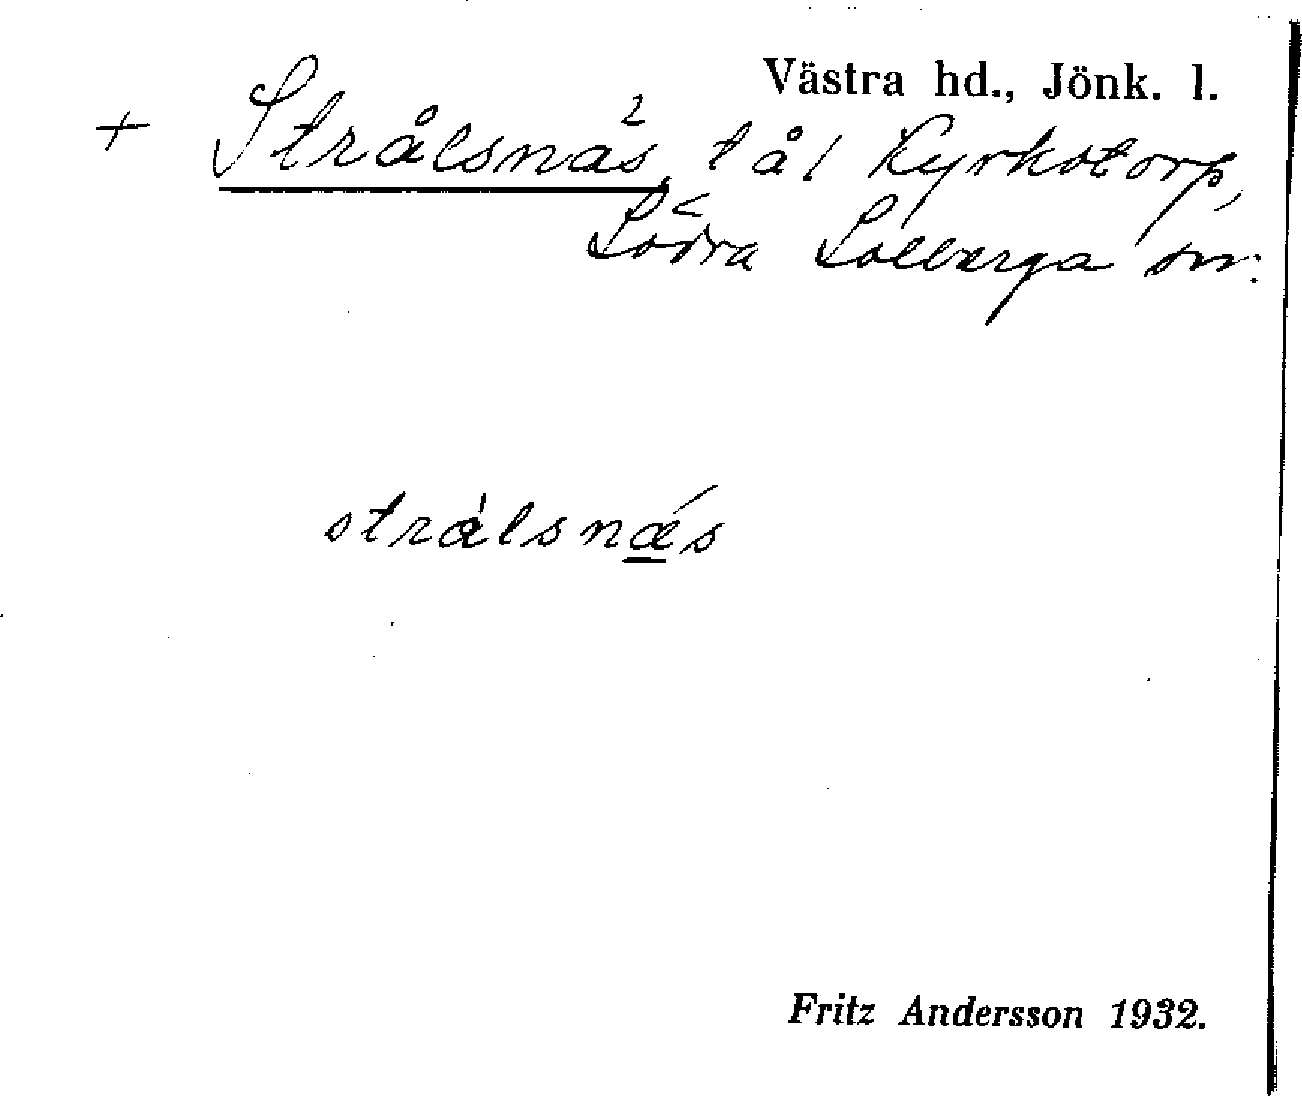 Västra hd., Jönk. l.
+ Strålsnäs, tål Kyrkotorp,
Södra Solberga sn:
strålsnǽs
Fritz Andersson 1932.